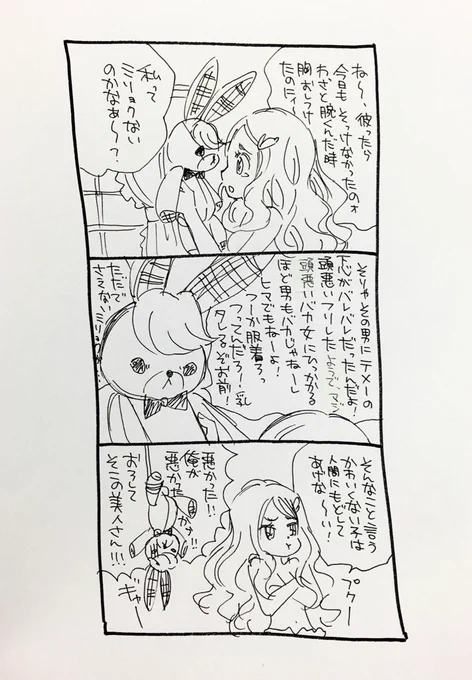 ね〜〜、彼ったら
今日もそっけなかったのォ
わざと腕くんだ時
胸おしつけ
たのにィ〜
私って
ミリョクない
のかなぁ〜〜？
そりゃその男にテメーの
下心がバレバレだったんだよ！
頭悪いフリした
頭悪いバカ女にひっかかる
ほど男もバカじゃねーし
ヒマでもねーよ！
フーか服着ろっ
つってんだろ！乳
タレるぞお前！
ただで
さえない
そんなこと言う
かわいくない子は
人間にもどして
あげな〜〜い！
プクー
悪かった!!
俺が
悪かった
おろして
そこの美人さん!!!
ギャー